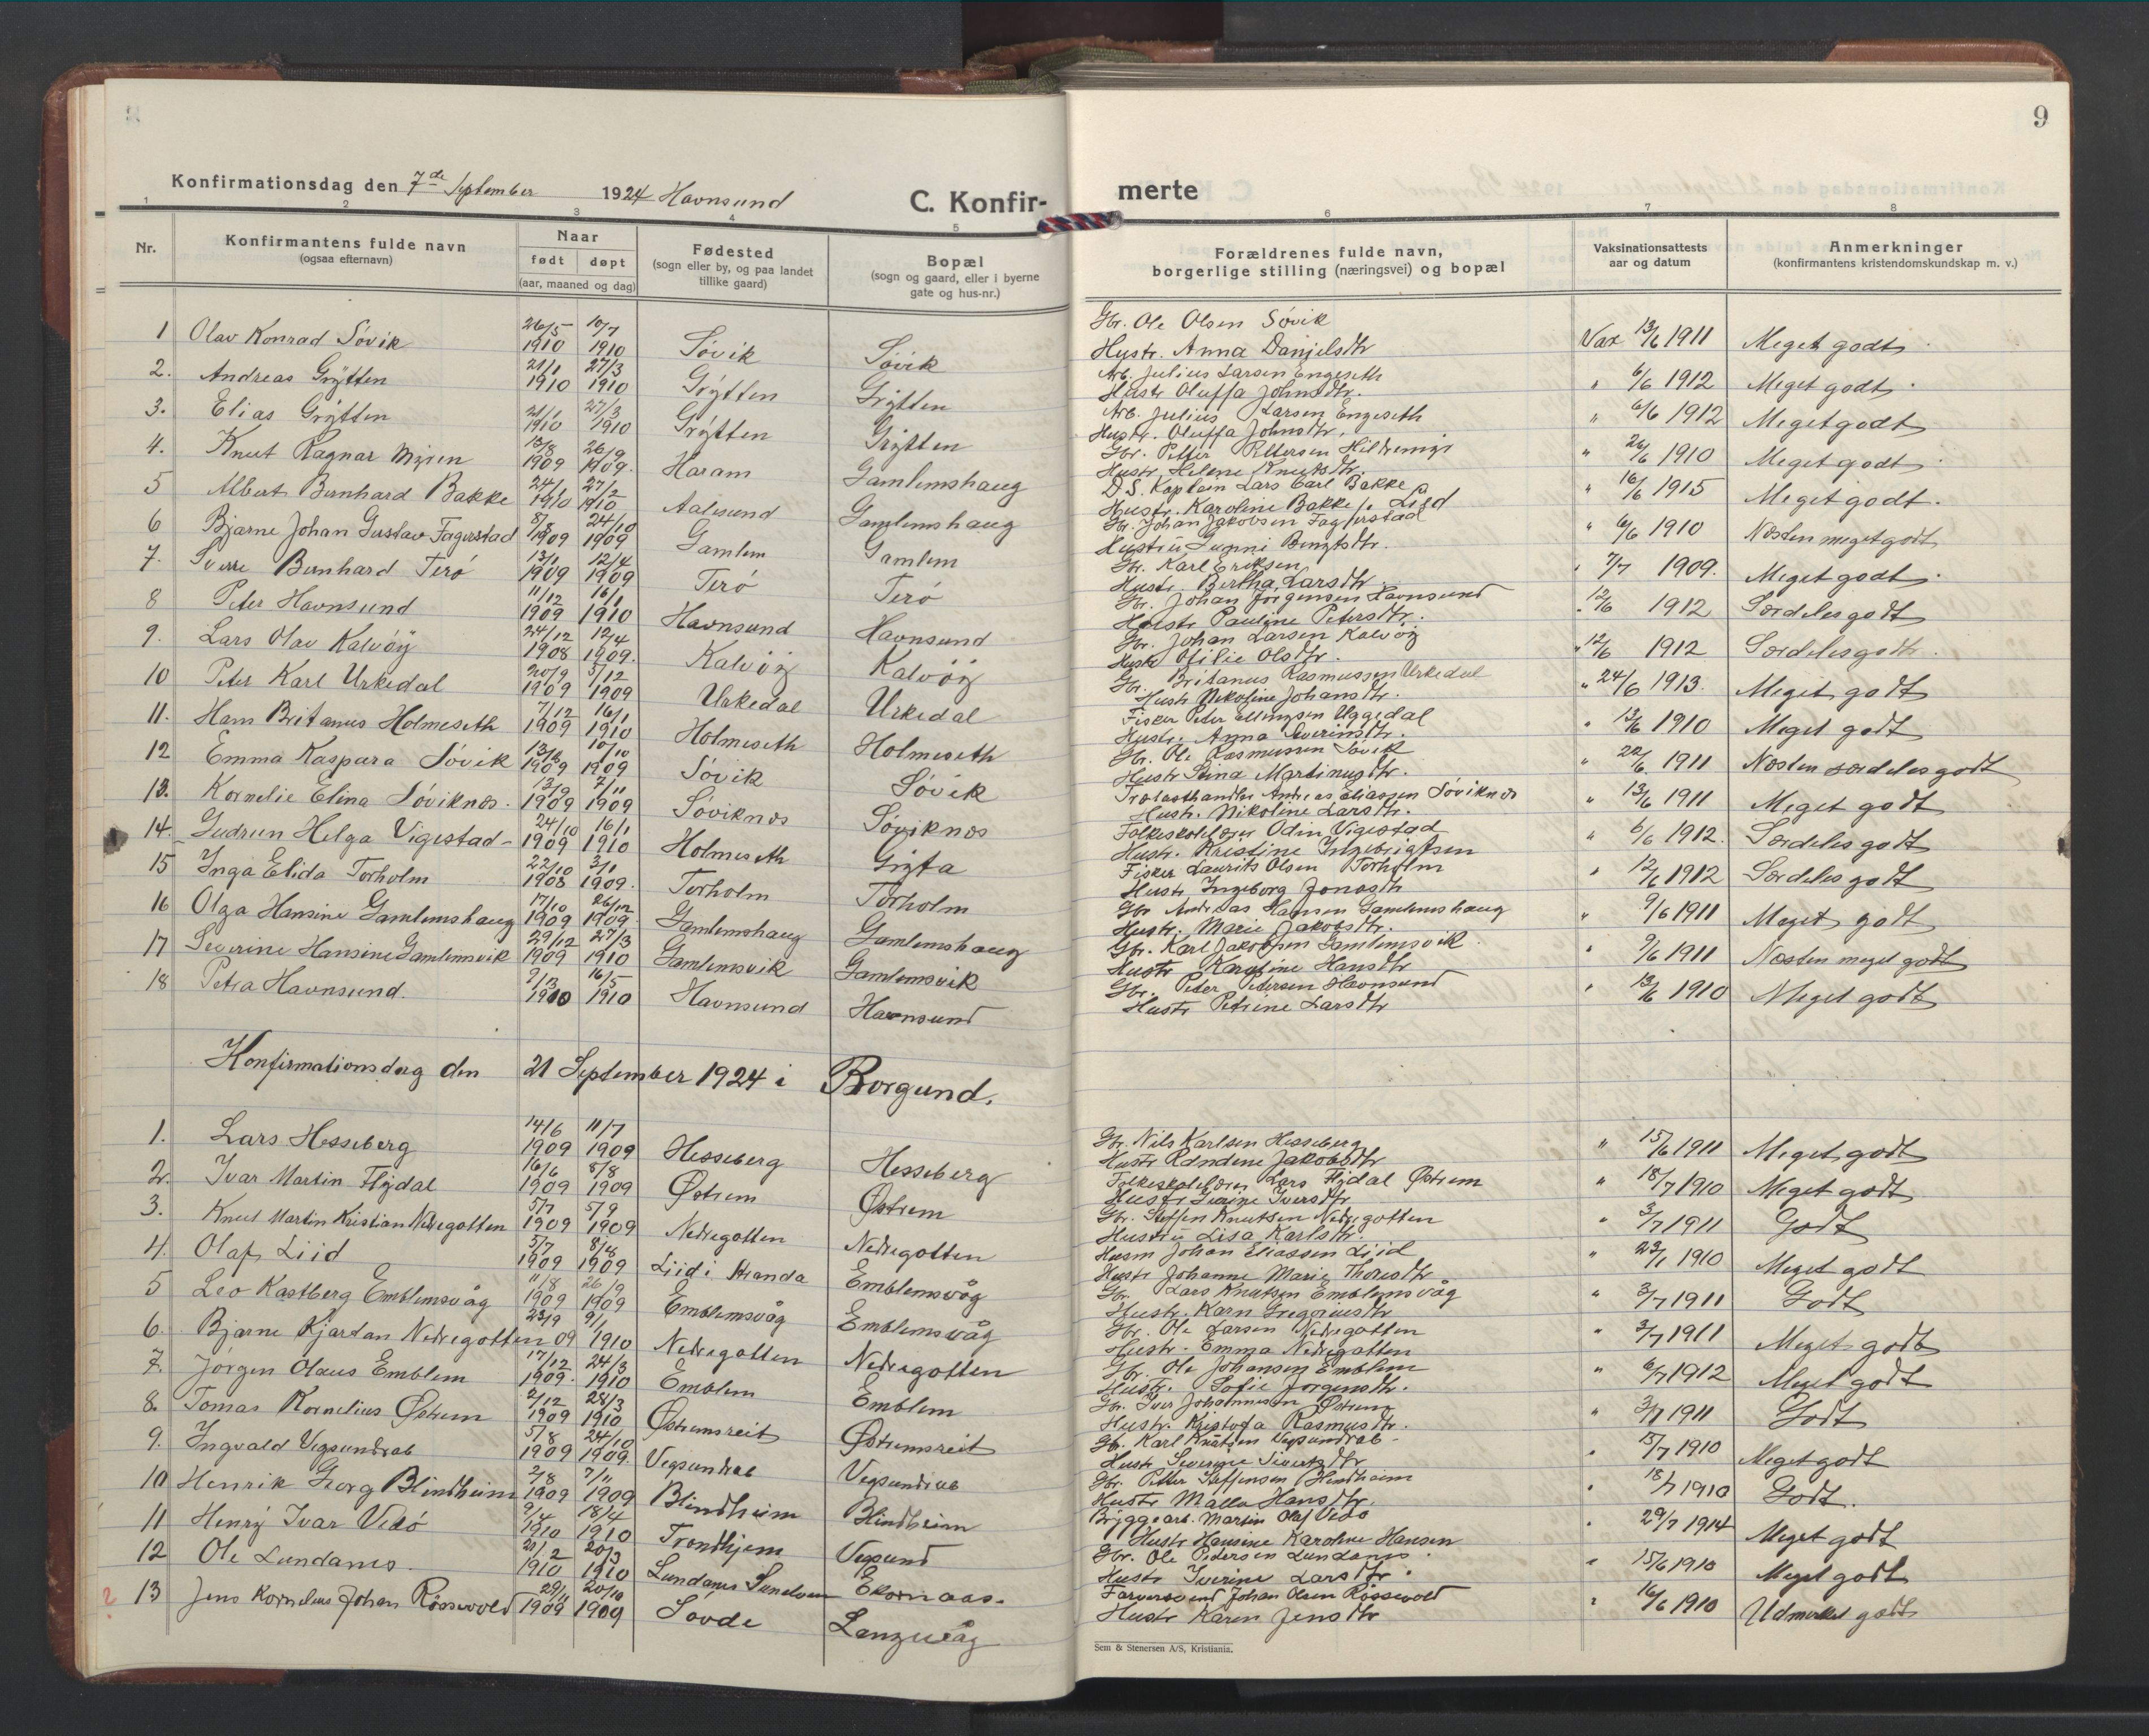 9
Konfirmationsdag den 7de September 1924 Havnsund
C. Konfir-
merte
1 2 3 4 5 6 7 8
Nr.
Konfirmantens fulde navn
(ogsaa efternavn)
Naar
født døpt
(aar, maaned og dag)
Fødested
(sogn eller by, og paa landet
tillike gaard)
Bopæl
(sogn og gaard, eller i byerne
gate og hus-nr.)
Forældrenes fulde navn,
borgerlige stilling (næringsvei) og bopæl
Vaksinationsattests
aar og datum
Anmerkninger
(konfirmantens kristendomskundskap m. v.)
1 Olav Konrad Søvik 26/5 1910 10/7 1910 Søvik Søvik Gbr. Ole Olsen Søvik
Hustr. Anna Danjelsdtr Vax 13/6 1911 Meget godt
2. Andreas Grÿtten 21/1 1910 27/3 1910 Grÿtten Grÿtten Arb. Julius Larsen Engeseth
Hustr Oluffa Johnsdtr. " 6/6 1912 Meget godt
3. Elias Grÿtten 21/1 1910 27/3 1910 Grÿtten Grÿtten Arb. Julius Larsen Engeseth
Hustr. Oluffa Johnsdtr. " 6/6 1912 Meget godt
4. Knut Ragnar 13/8 1909 26/9 1909. Haram Gamlemshaug Gbr. Petter Pettersen
Hustr. Helene Knutsdtr. " 26/6 1910 Meget godt
5 Albert Bernhard Bakke 24/1 1910 27/2 1910 Aalesund Gamlemshaug D.S. Kaptein Lars Carl Bakke
Hustr. Karoline Bakke f. Liid " 16/6 1915 Meget godt.
6 Bjarne Johan Gustav Fagerstad 5/8 1909 24/10 1909 Gamlem Gamlem Gbr. Johan Jakobsen Fagerstad
Hustrü Gunni Bengtsdtr. " 6/6 1910 Næsten meget godt
7. Sverre Bernhard Terö 13/1 1909 12/4 1909 Terö Terö Gbr. Karl Eriksen
Hustr. Bertha Larsdtr. " 7/7 1909. Meget godt.
8 Peter Havnsund 11/12 1909 16/1 1910 Havnsund Havnsund Gbr. Johan Jørgensen Havnsund
Hustr Pauline Petersdtr. " 12/6 1912 Særdeles godt
9. Lars Olav Kalvöÿ 24/12 1908 12/4 1909. Kalvöÿ Kalvöÿ Gbr. Johan Larsen Kalvöÿ
Hustr Otilie Olsdtr. " 12/6 1912 Særdeles godt.
10 Peter Karl Urkedal 20/9 1909 5/12 1909 Urkedal Urkedal Gbr. Britanus Rasmussen Urkedal
Hustr Nikoline Johansdtr. " 24/6 1913. Meget godt
11. Hans Britanus Holmeseth 7/12 1909 16/1 1910 Holmeseth Holmeseth Fisker Peter Ellingsen Uggedal
Hustr. Anna Severinsdtr. " 13/6 1910 Meget godt
12 Emma Kaspara Søvik 13/6 1909 10/10 1909 Søvik Søvik Gbr. Ole Rasmussen Søvik
Hustr Stina Martinusdtr. " 22/6 1911 Næsten særdeles godt
13. Kornelie Elina Søviknes. 13/9 1909 7/11 1909 Søviknes Søviknes Trælasthandler Andreas Eliassen Søviknes
Hustr. Nikoline Larsdtr. " 13/6 1911 Meget godt
14. Gudrun Helga Vigestad 24/10 1909 16/1 1910 Holmeseth Grÿta Folkeskolelærer Odin Vigestad
Hustr. Kristine Ingebrigtsen " 6/6 1912. Særdeles godt
15 Inga Elida Torholm 22/10 1908 3/1 1909. Torholm Torholm Fisker Laurits Olsen Torholm
Hustr Ingeborg Jonasdtr " 12/6 1912 Særdeles godt
16 Olga Hansine Gamlemshaug 17/10 1909 26/12 1909. Gamlemshaug Gamlemshaug Gbr Andreas Hansen Gamlemshaug
Hustr. Marie Jakobsdtr. " 9/6 1911 Meget godt
17 Severine Hansine Gamlemsvik 29/12 1909 27/3 1910 Gamlemsvik Gamlemsvik Gbr. Karl Jakobsen Gamlemsvik
Hustr Karoline Hansdtr " 9/6 1911 Næsten meget godt
18 Petra Havnsund. 9/3 1910 16/5 1910 Havnsund Havnsund Gbr. Peter Petersen Havnsund
Hustr Petrine Larsdtr " 13/6 1910 Meget godt
Konfirmationsdag den 21 September 1924 i Borgund.
1. Lars Hesseberg 14/6 1909 11/7 1909 Hesseberg Hesseberg Gbr. Nils Karlsen Hesseberg
Hustr Randine Jakobsdtr " 15/6 1911 Meget godt
2. Ivar Martin Flÿdal 16/6 1909 8/8 1909 Østrem Østrem Folkeskolelærer Lars Flÿdal Østrem
Hustr Iversdtr " 18/7 1910 Meget godt
3. Knut Martin Kristian Nedregotten 5/7 1909 5/9 1909 Nedregotten Nedregotten Gbr. Steffen Knutsen Nedregotten
Hustrü Lisa Karlsdtr. " 3/7 1911 Godt
4. Olaf Liid 5/7 1909 8/8 1909 Liid i Stranda Emblemsvåg Husm Johan Eliassen Liid
Hustr Johanne Marie Thoresdtr " 23/1 1910 Meget godt
5 Leo Kastberg Emblemsvåg 11/8 1909 26/9 1909 Emblemsvåg Emblemsvåg Gbr. Lars Knutsen Emblemsvåg
Hustr. Karn Gregoriusdtr " 3/7 1911 Godt
6. Bjarne Kjartan Nedregotten 23/9 09 9/1 1910 Nedregotten Nedregotten Gbr. Ole Larsen Nedregotten
Hustr. Emma Nedregotten " 3/7 1911 Meget godt
7. Jörgen Olaus Emblem 17/12 1909. 24/3 1910 Emblem Emblem Gbr. Ole Johansen Emblem
Hustr. Sofie Jörgensdtr. " 6/7 1912 Meget godt
8. Tomas Kornelius Østrem 2/12 1909 28/3 1910 Østremsreit Østremsreit Gbr. Iver Johannesen Østrem
Hustr. Kristofa Rasmusdtr. " 3/7 1911 Godt
9. Ingvald Vegsundrab 5/8 1909 24/10 1909. Vegsundrab Vegsundrab Gbr. Karl Knutsen Vegsundrab
Hustr Severine Sivertsdtr " 15/7 1910 Meget godt
10 Henrik Georg Blindheim 2/8 1909 7/11 1909 Blindheim Blindheim Gbr. Petter Steffensen Blindheim
Hustr Malla Hansdtr. " 18/7 1910 Godt.
11 Henrÿ Ivar Vedö 9/4 1910 18/4 1910 Trondhjem Vegsund Bryggearb. Martin Olaf Vedö
Hustr Hansine Karoline Hansen " 29/7 1914 Meget godt
12 Ole Lundanes. 20/2 1910 20/3 1910 Lundanes Ekornaas. Gbr. Ole Pedersen Lundanes.
Hustr Iverine Larsdtr. " 15/6 1910 Meget godt
? 13 Jens Kornelius Johan Rössevold 29/11 1909 20/10 1909 Sovde Langevåg Farversvend Johan Olsen Rössevold
Hustr Karen Jensdtr " 16/6 1910 Udmerket godt
Sem & Stenersen A/S, Kristiania.